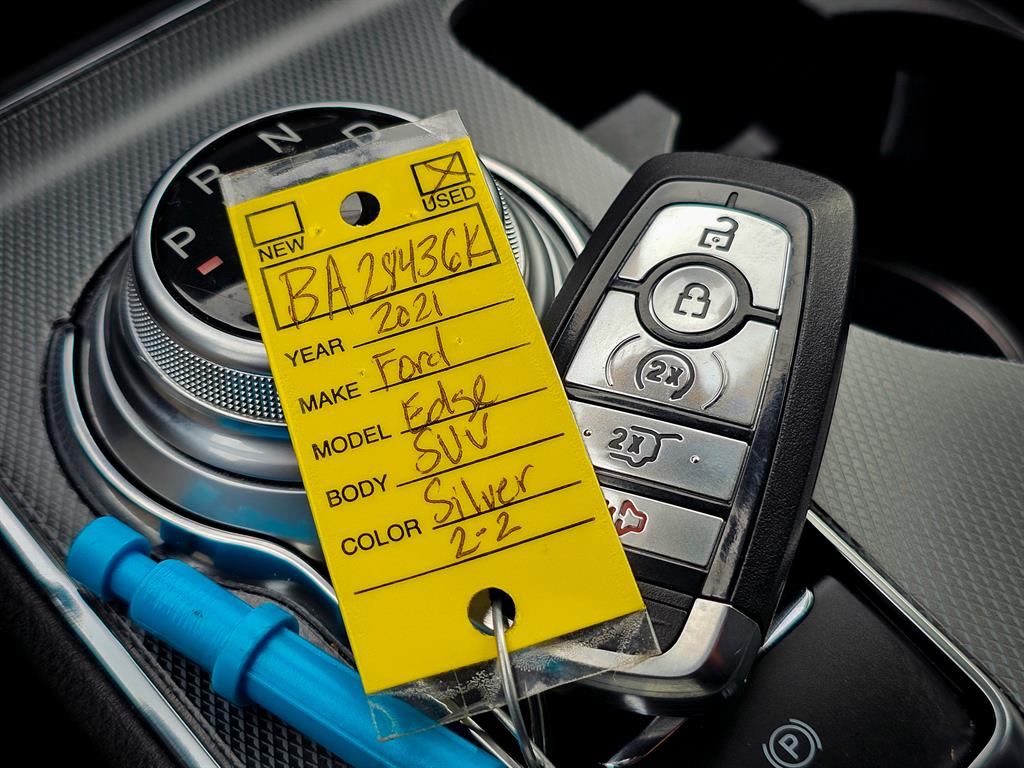 P R N D
NEW
USED
BA28436K
YEAR 2021
MAKE Ford
MODEL Edge
BODY SUV
COLOR Silver
2-2
2x
2x
P